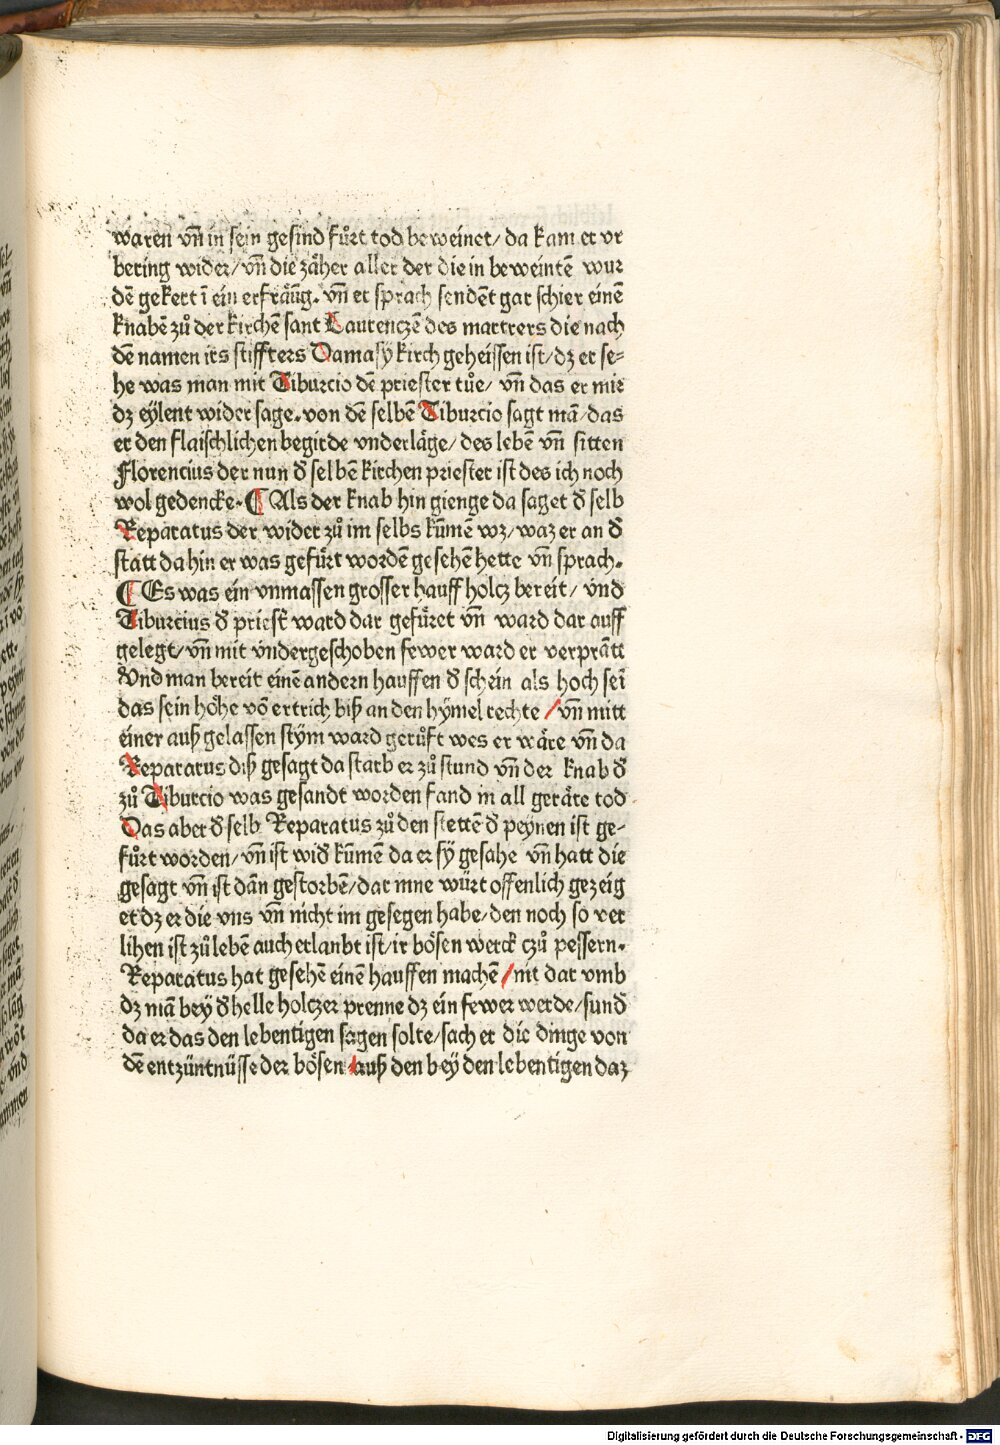 waren vn̄ in sein gesind fu̇rt tod beweinet/ da kam er vr
bering wider/ vn̄ die zäher aller der die in beweintē wur
dē gekert ī ein erfräūg. vn̄ er sprach sendēt gar schier einē
knabē zů der kirchē sant Laurenczē des martrers die nach
dē namen irs stiffters Damasy kirch geheissen ist/ dz er se⸗
he was man mit Tiburcio dē priester tůe/ vn̄ das er mir
dz eÿlent wider sage. von dē selbē Tiburcio sagt mā/ das
er den flaischlichen begirde vnderläge/ des lebē vn̄ sitten
Florencius der nun d̄ selbē kirchen priester ist des ich noch
wol gedencke. ¶ Als der knab hin gienge da saget d̄ selb
Reparatus der wider zů im selbs kūmē wz/ waz er an d̄
statt da hin er was gefürt wordē gesehē hette vn̄ sprach.
¶ Es was ein vnmassen grosser hauff holcz bereit/ vnd
Tiburcius d̄ priest̄ ward dar gefüret vn̄ ward dar auff
gelegt/ vn̄ mit vndergeschoben fewer ward er verprātt
Vnd man bereit einē andern hauffen d̄ schein als hoch seī
das sein höhe vō ertrich biß an den hÿmel rechte / vn̄ mitt
einer auß gelassen stÿm ward gerůft wes er wäre vn̄ da
Reparatus diß gesagt da starb er zů stund vn̄ der knab d̄
zů Tiburcio was gesandt worden fand in all geräte tod
Das aber d̄ selb Reparatus zů den stettē d̄ peÿnen ist ge⸗
fu̇rt worden/ vn̄ ist wid̄ kūmē da er sÿ gesahe vn̄ hatt die
gesagt vn̄ ist dān gestorbē/ dar inne würt offenlich gezeig
et dz er die vns vn̄ nicht im gesegen habe/ den noch so ver
lihen ist zů leben auch erlaubt ist/ ir bösen werck czů pessern.
Reparatus hat gesehē einē hauffen machē / nit dar vmb
dz mā bey d̄ helle holczer prenne dz ein fewer werde/ sund̄
da er das den lebentigen sagen solte/ sach er die dinge von
dē entzüntnüsse der bösen auß den beÿ den lebentigen daz
Digitalisierung gefördert durch die Deutsche Forschungsgemeinschaft - DFG